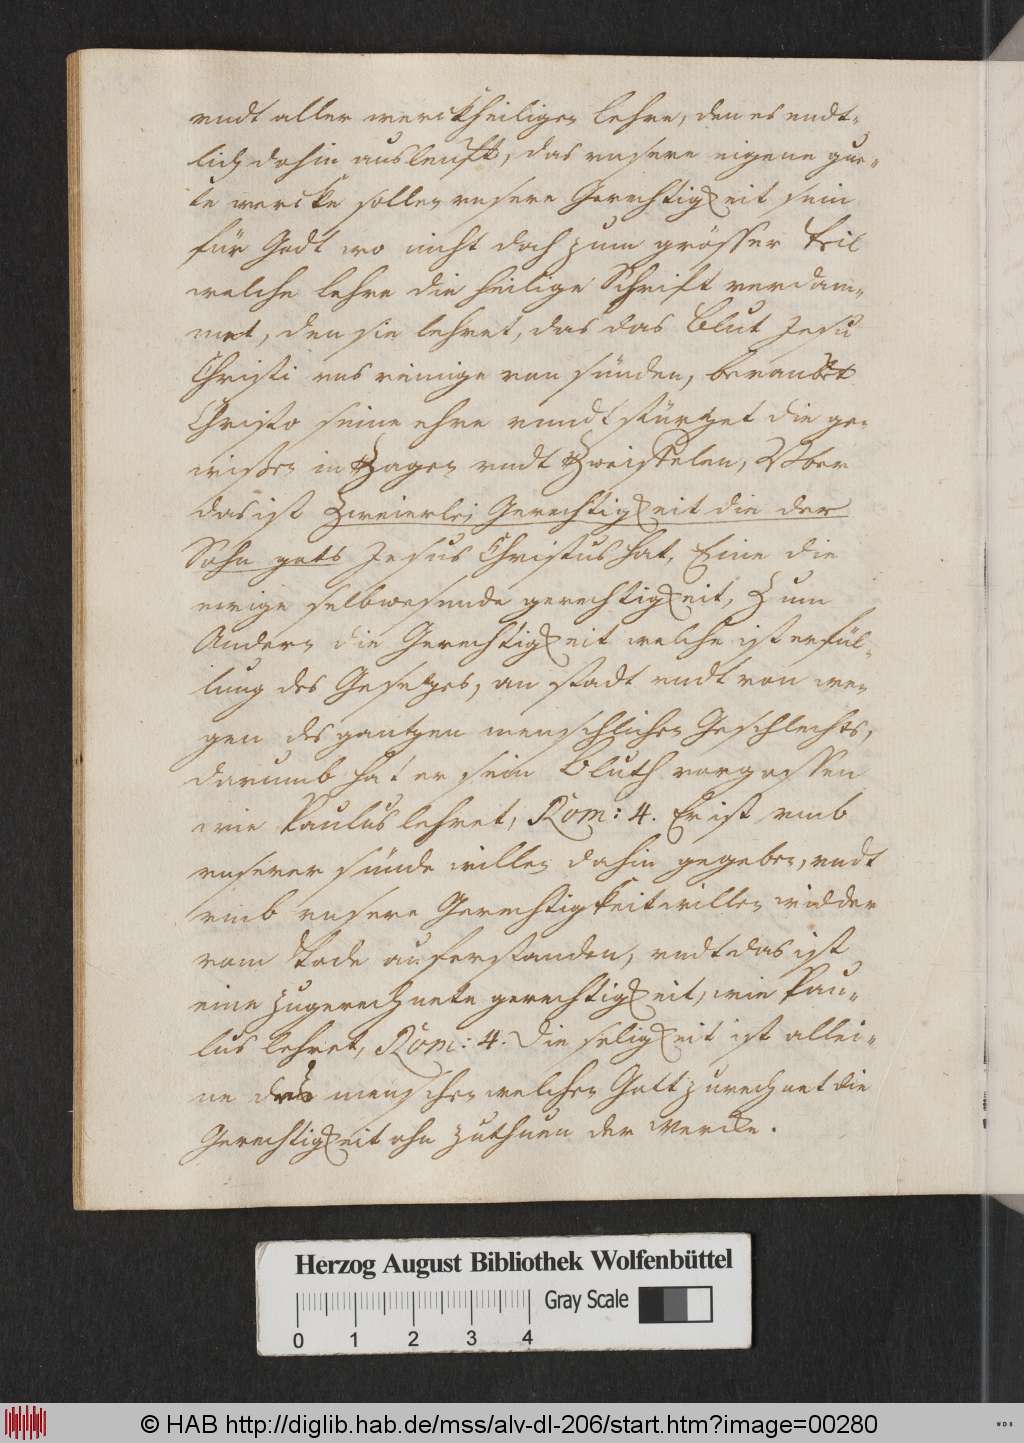 vndt aller werckheiligen lehre, den es endt-
lich dahinausleufft, das vnsere eigene gue-
te wercke sollen vnsere Gerechtigkeit sein
für Godt wo nicht doch zum grösser teil
welche lehre die heilige Schrifft verdam-
met, den sie lehret, das das blut Jesu
Christi vns reinige von sünden, beraubet
Christo seine ehre vnndt stürtzet die ge-
wissen in Zagen vndt Zweiffelen, Vber
das ist Zweierlei Gerechtigkeit die der
Sohn gots Jesus Christus hat, Eine die
ewige selbwesende gerechtigkeit, Zum
Andern die Gerechtigkeit welche ist erfül-
lung des Gesetzes, an stadt vndt von we-
gen des gantzen menschlichen Geschlechts,
darumb hat er sein Bluth vorgossen
wie Paulus lehret, Rom: 4. Er ist vmb
vnserer sünde willen dahin gegeben, vndt
vmb vnsere Gerechtigkeit willen widder
vom Tode auferstanden, vndt das ist
eine zugerechnete gerechtigkeit, wie Pau-
lus lehret, Rom: 4. Die seligkeit ist allei-
ne des menschen welchen Gott zurechnet die
Gerechtigkeit ohn zuthuen der Wercke.
Herzog August Bibliothek Wolfenbüttel
Gray Scale
0 1 2 3 4
© HAB http://diglib.hab.de/mss/alv-dl-206/start.htm?image=00280